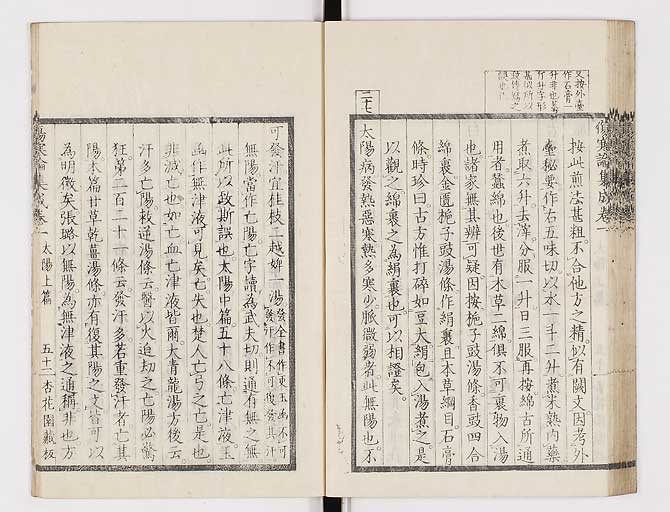 又按外臺
作石膏一
升非也蓋
斤升字形
甚似所以
誤也
傷寒論集成卷一
按此煎法甚粗不合他方之精似有闕文因考外
臺秘要作右五味切以水一斗二升煮米熟内藥
煮取六升去滓分服一升日三服再按綿古所通
用者蠶綿也後世有木草二綿俱不可裹物入湯
也諸家無其辨可疑因按梔子豉湯條香豉四合
綿裹金匱梔子豉湯條作絹裹且本草綱目石膏
條時珍曰古方惟打碎如豆大絹包入湯煮之是
以觀之綿裹之為絹裹也可以相證矣
二十七
太陽病發熱惡寒熱多寒少脈微弱者此無陽也不
可發汗宜桂枝二越婢一湯
發全書作更玉函不可
發汗作不可復發其汗
無陽當作亡陽亡字讀為武夫切則通有無之無
此所以政斯誤也太陽中篇五十八條亡津液玉
函作無津液可見矣亡失也楚人亡弓之亡是也
非滅亡也如亡血亡津液皆爾大青龍湯方後云
汗多亡陽救逆湯條云醫以火迫劫之亡陽必驚
狂第二百二十一條云發汗多若重發汗者亡其
陽本篇甘草乾薑湯條亦有復其陽之文皆可以
為明徵矣張璐以無陽為無津液之通稱非也方
傷寒論集成卷一
太陽上篇
五十二
杏花園藏板